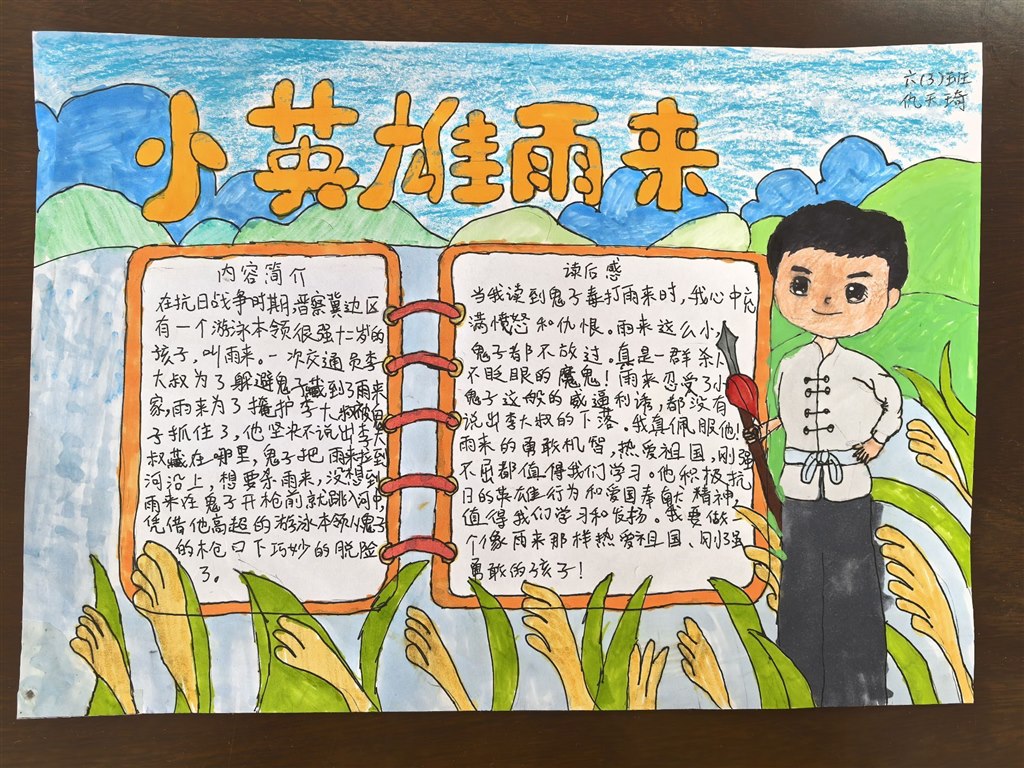 小英雄雨来
六(3)班
仇天琦
内容简介
在抗日战争时期晋察冀边区
有一个游泳本领很强十一岁的
孩子,叫雨来。一次交通员李
大叔为了躲避鬼子藏到了雨来
家,雨来为了掩护李大叔被鬼
子抓住了,他坚决不说出李大
叔藏在哪里,鬼子把雨来拉到
河沿上,想要杀雨来,没想到
雨来在鬼子开枪前就跳入河中,
凭借他高超的游泳本领从鬼子
的枪口下巧妙的脱险
了。
读后感
当我读到鬼子毒打雨来时,我心中充
满愤怒和仇恨。雨来这么小,
鬼子都不放过。真是一群杀人
不眨眼的魔鬼!雨来忍受了小
鬼子这般的威逼利诱,都没有
说出李大叔的下落。我真佩服他!
雨来的勇敢机智,热爱祖国,刚强
不屈都值得我们学习。他积极抗
日的英雄行为和爱国奉献精神,
值得我们学习和发扬。我要做一
个像雨来那样热爱祖国、刚强
勇敢的孩子!